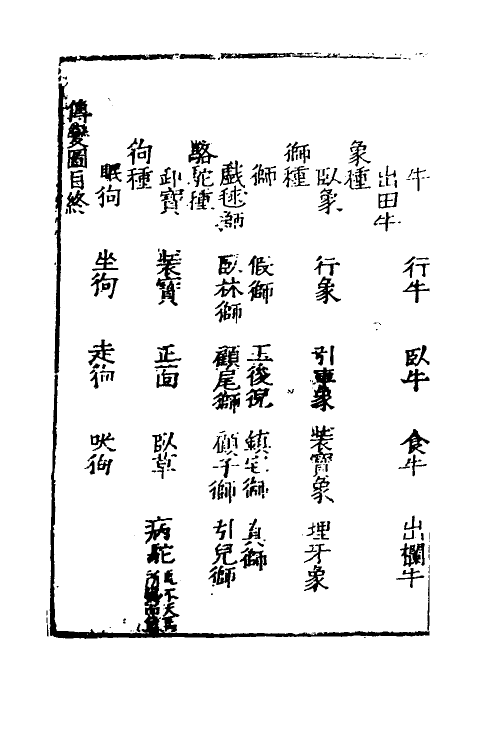 牛　行牛　臥牛　食牛　出欄牛
出田牛
象種
臥象　行象　引車象　裝寶象　埋牙象
獅種
獅　假獅　玉後猊　鎮宅獅　真獅
戲毬獅　臥林獅　顧尾獅　顧子獅　引兒獅
駱駝種
卸寶　裝寶　正面　臥草　病駝
狗種
眠狗　坐狗　走狗　吠狗
傳變圖目終